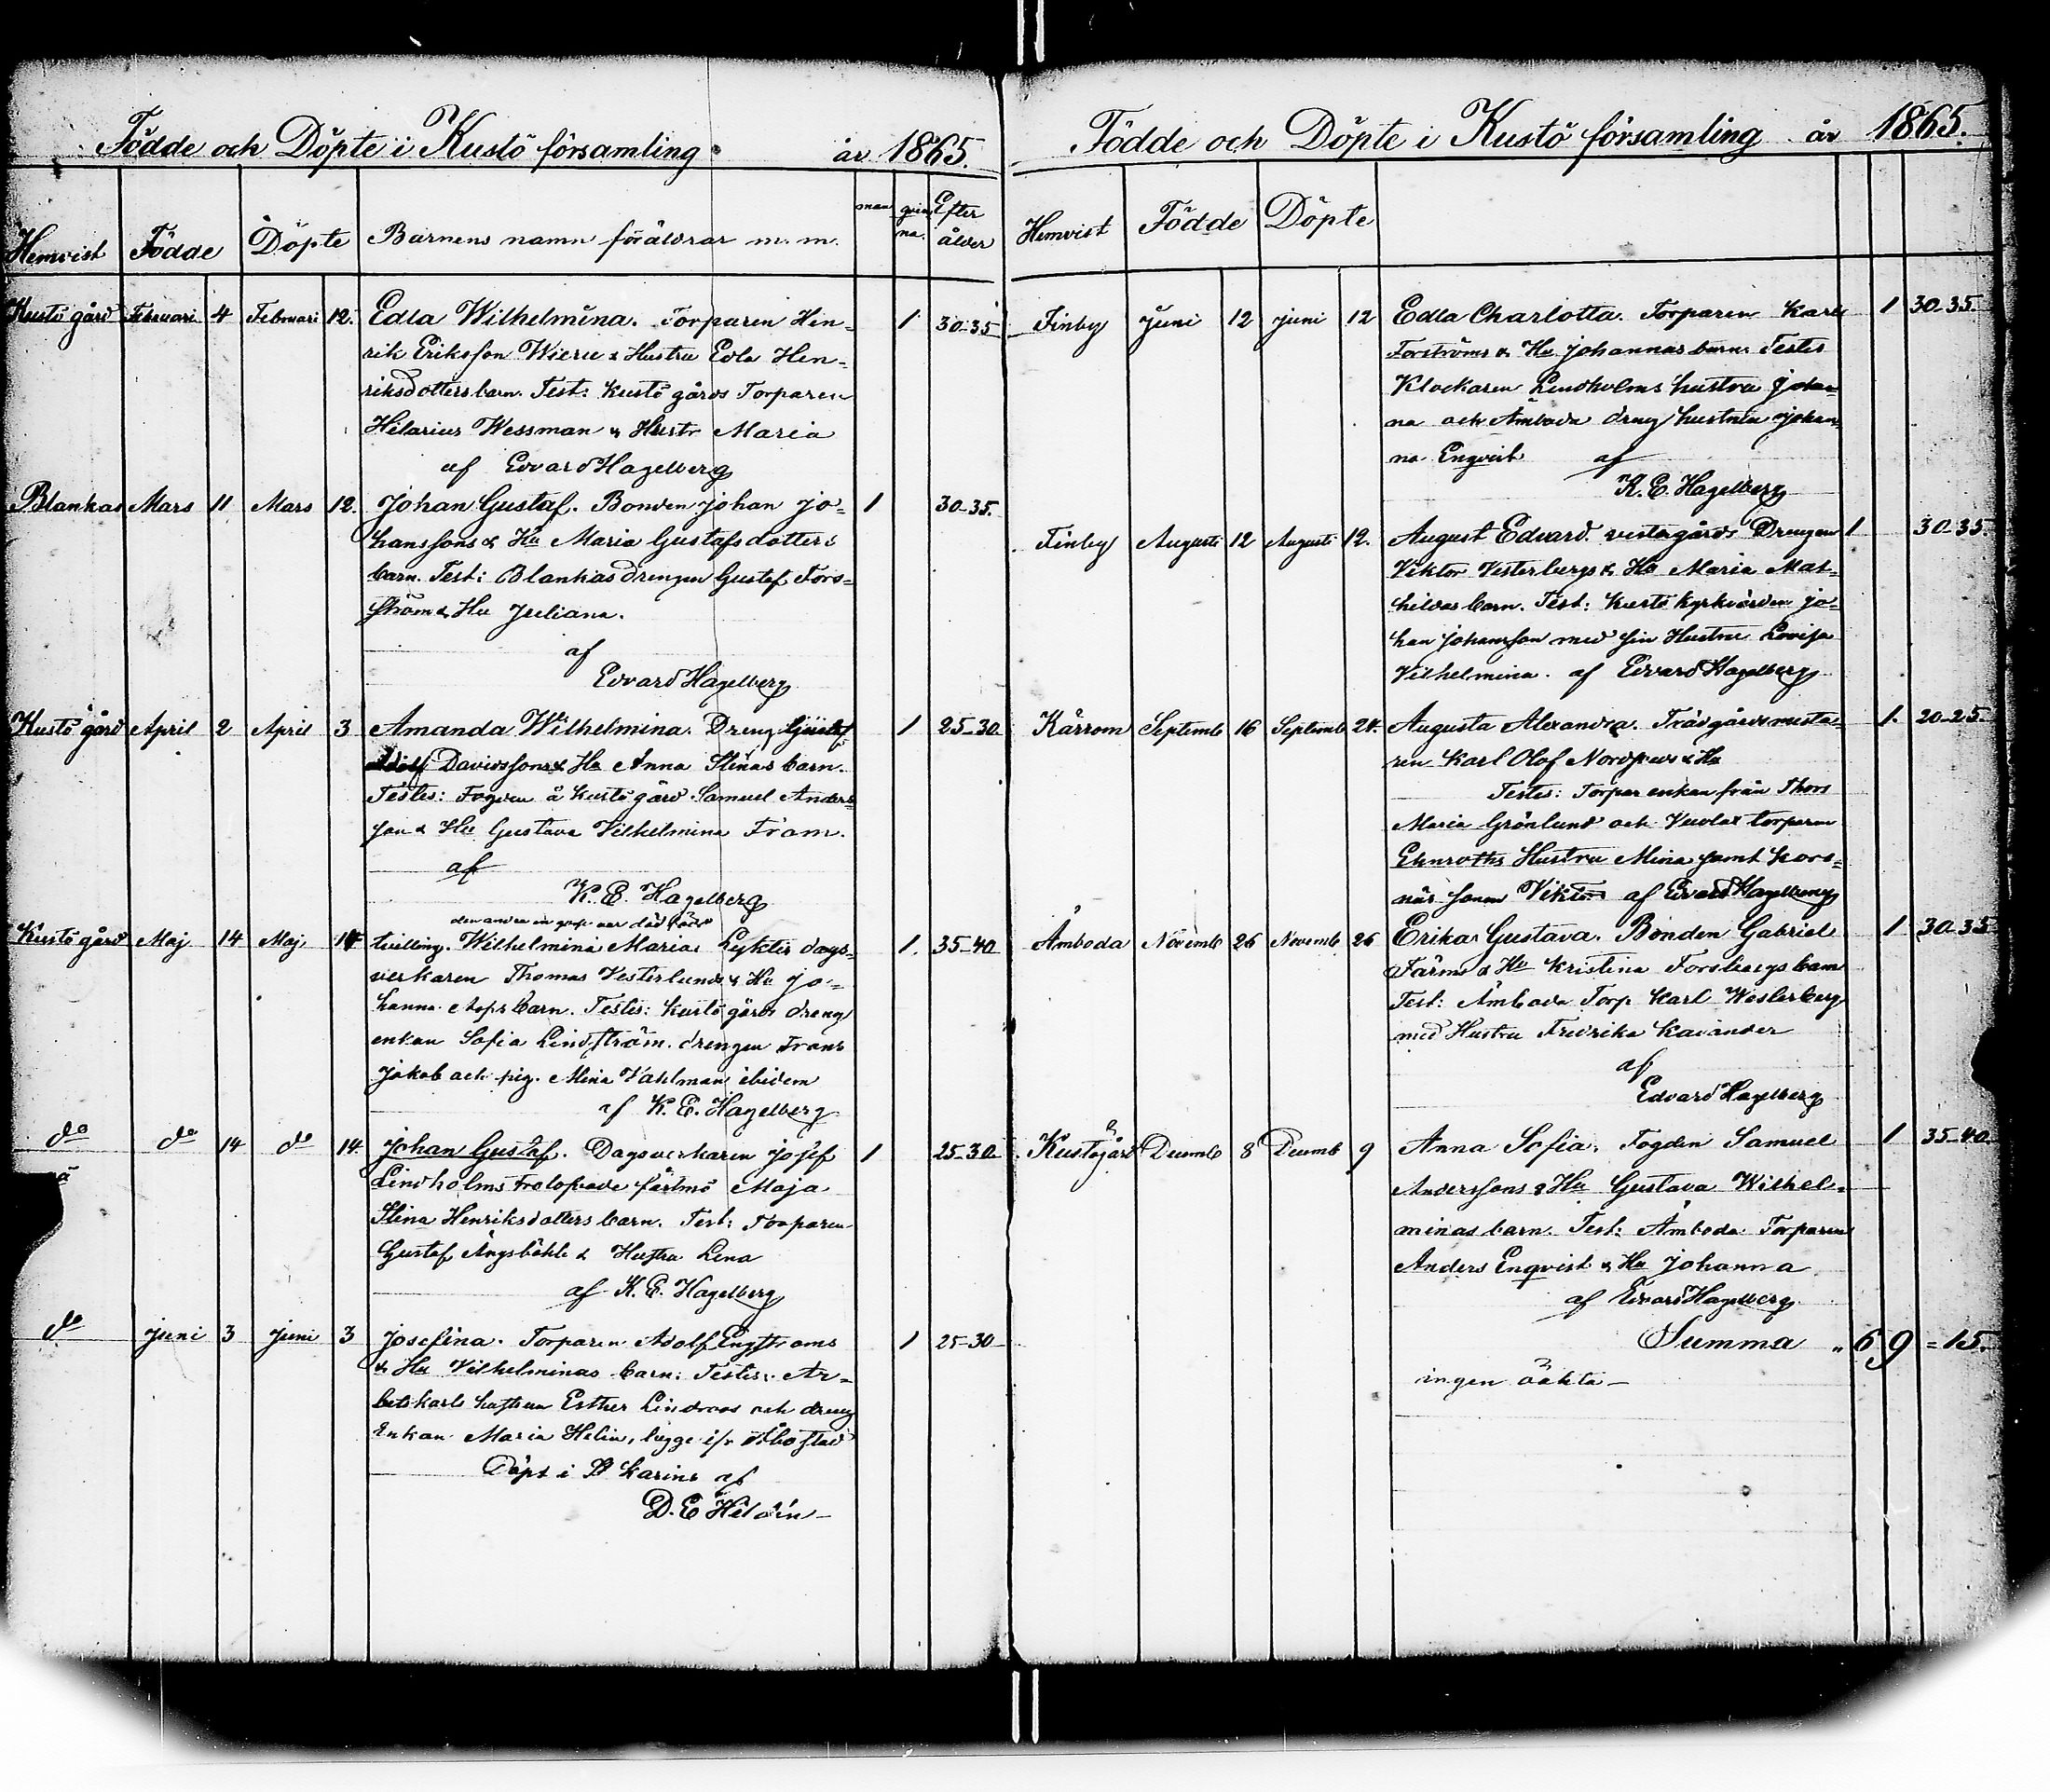 Födde och Döpte i Kustö församling år 1865.
Hemvist Födde Döpte Barnens namn föräldrar m. m. man qvin na. Efter ålder
Kustö gård Februari 4 Februari 12. Edla Wilhelmina. Torparen Hin- 1 30-35
rik Eriksson Wieru & Hustru Edla Hen-
riksdotters barn. Test: Kustö gårds Torparen
Hilarius Wessman & Hustr Maria
af Edvard Hagelberg
Blankas Mars 11 Mars 12. Johan Gustaf. Bonden Johan Jo- 1 30-35.
hanssons & Hu Maria Gustafsdotters
barn. Test: Blankas drengen Gustaf Fors-
ström & Hu Juliana.
af
Edvard Hagelberg
Kustö gård April 2 April 3 Amanda Wilhelmina. Dreng Gustaf 1 25-30
Adolf Davidssons & Hu Anna Stinas barn.
Testes: Fogden å Kustö gård Samuel Anders-
son & Hu Gustava Vilhelmina Fram.
af
K. E. Hagelberg
den andra var död född
Kustö gård Maj 14 Maj 14 tvilling. Wilhelmina Maria. Lyktis dags- 1. 35-40
verkaren Thomas Vesterlunds & Hu Jo-
hanna barn. Testes: Kustö gårds dreng
enkan Sofia Lindström. drengen Frans
Jakob och pig. Mina Vahlman ibidem
af K. E. Hagelberg
do do 14 do 14 Johan Gustaf. Dagsverkaren Josef 1 25-30
Lindholms Trolofvade fästmö Maja
Stina Henriksdotters barn. Test: Torparen
Gustaf Ängsbåhle & Hustru Lena
af K. E. Hagelberg
do Juni 3 Juni 3 Josefina. Torparen Adolf Engströms 1 25-30
& Hu Vilhelminas barn: Testes: Ar-
betskarls hustrun Esther Lindroos och dreng
Enkan Maria Helin, bägge ifr Åbo stad
Döpt i St Karins af
D. E. Hildén
Födde och Döpte i Kustö församling år 1865.
Hemvist Födde Döpte
Finby Juni 12 Juni 12 Edla Charlotta. Torparen Karl 1 30-35.
Forströms & Hu Johannas barn. Testes
Klockaren Lindholms hustru Johan-
na och Åmboda dreng hustrun Johan-
na Enqvist af
K. E. Hagelberg
Finby Augusti 12 Augusti 12. August Edvard. vestergårds Drengen 1 30-35.
Viktor Vesterbergs & Hu Maria Mat-
hildas barn. Test: Kustö kyrkvärden Jo-
han Johansson med sin Hustru Lovisa
Vilhelmina. af Edvard Hagelberg
Kärrom Septemb 16 Septemb 24. Augusta Alexandra. Trädgårdsmästa- 1. 20-25.
ren Karl Olof & Hu
Testes: Torpar enkan från Thors
Maria Grönlund och torparen
Ehnroths Hustru Mina samt
sonen Viktor af Edvard Hagelberg
Åmboda Novemb 26 Novemb 26 Erika Gustava. Bonden Gabriel 1 30-35
Färms & Hu Kristina Forsbergs barn
Test: Åmboda Torp Karl Westerberg
med Hustru Fredrika Kavander
af
Edvard Hagelberg
Kustögård Decemb 8 Decemb 9 Anna Sofia. Fogden Samuel 1 35-40.
Anderssons & Hu Gustava Wilhel-
minas barn. Test: Åmboda Torparen
Anders Enqvist & Hu Johanna
af Edvard Hagelberg
Summa „ 6 9 = 15.
ingen oäkta –